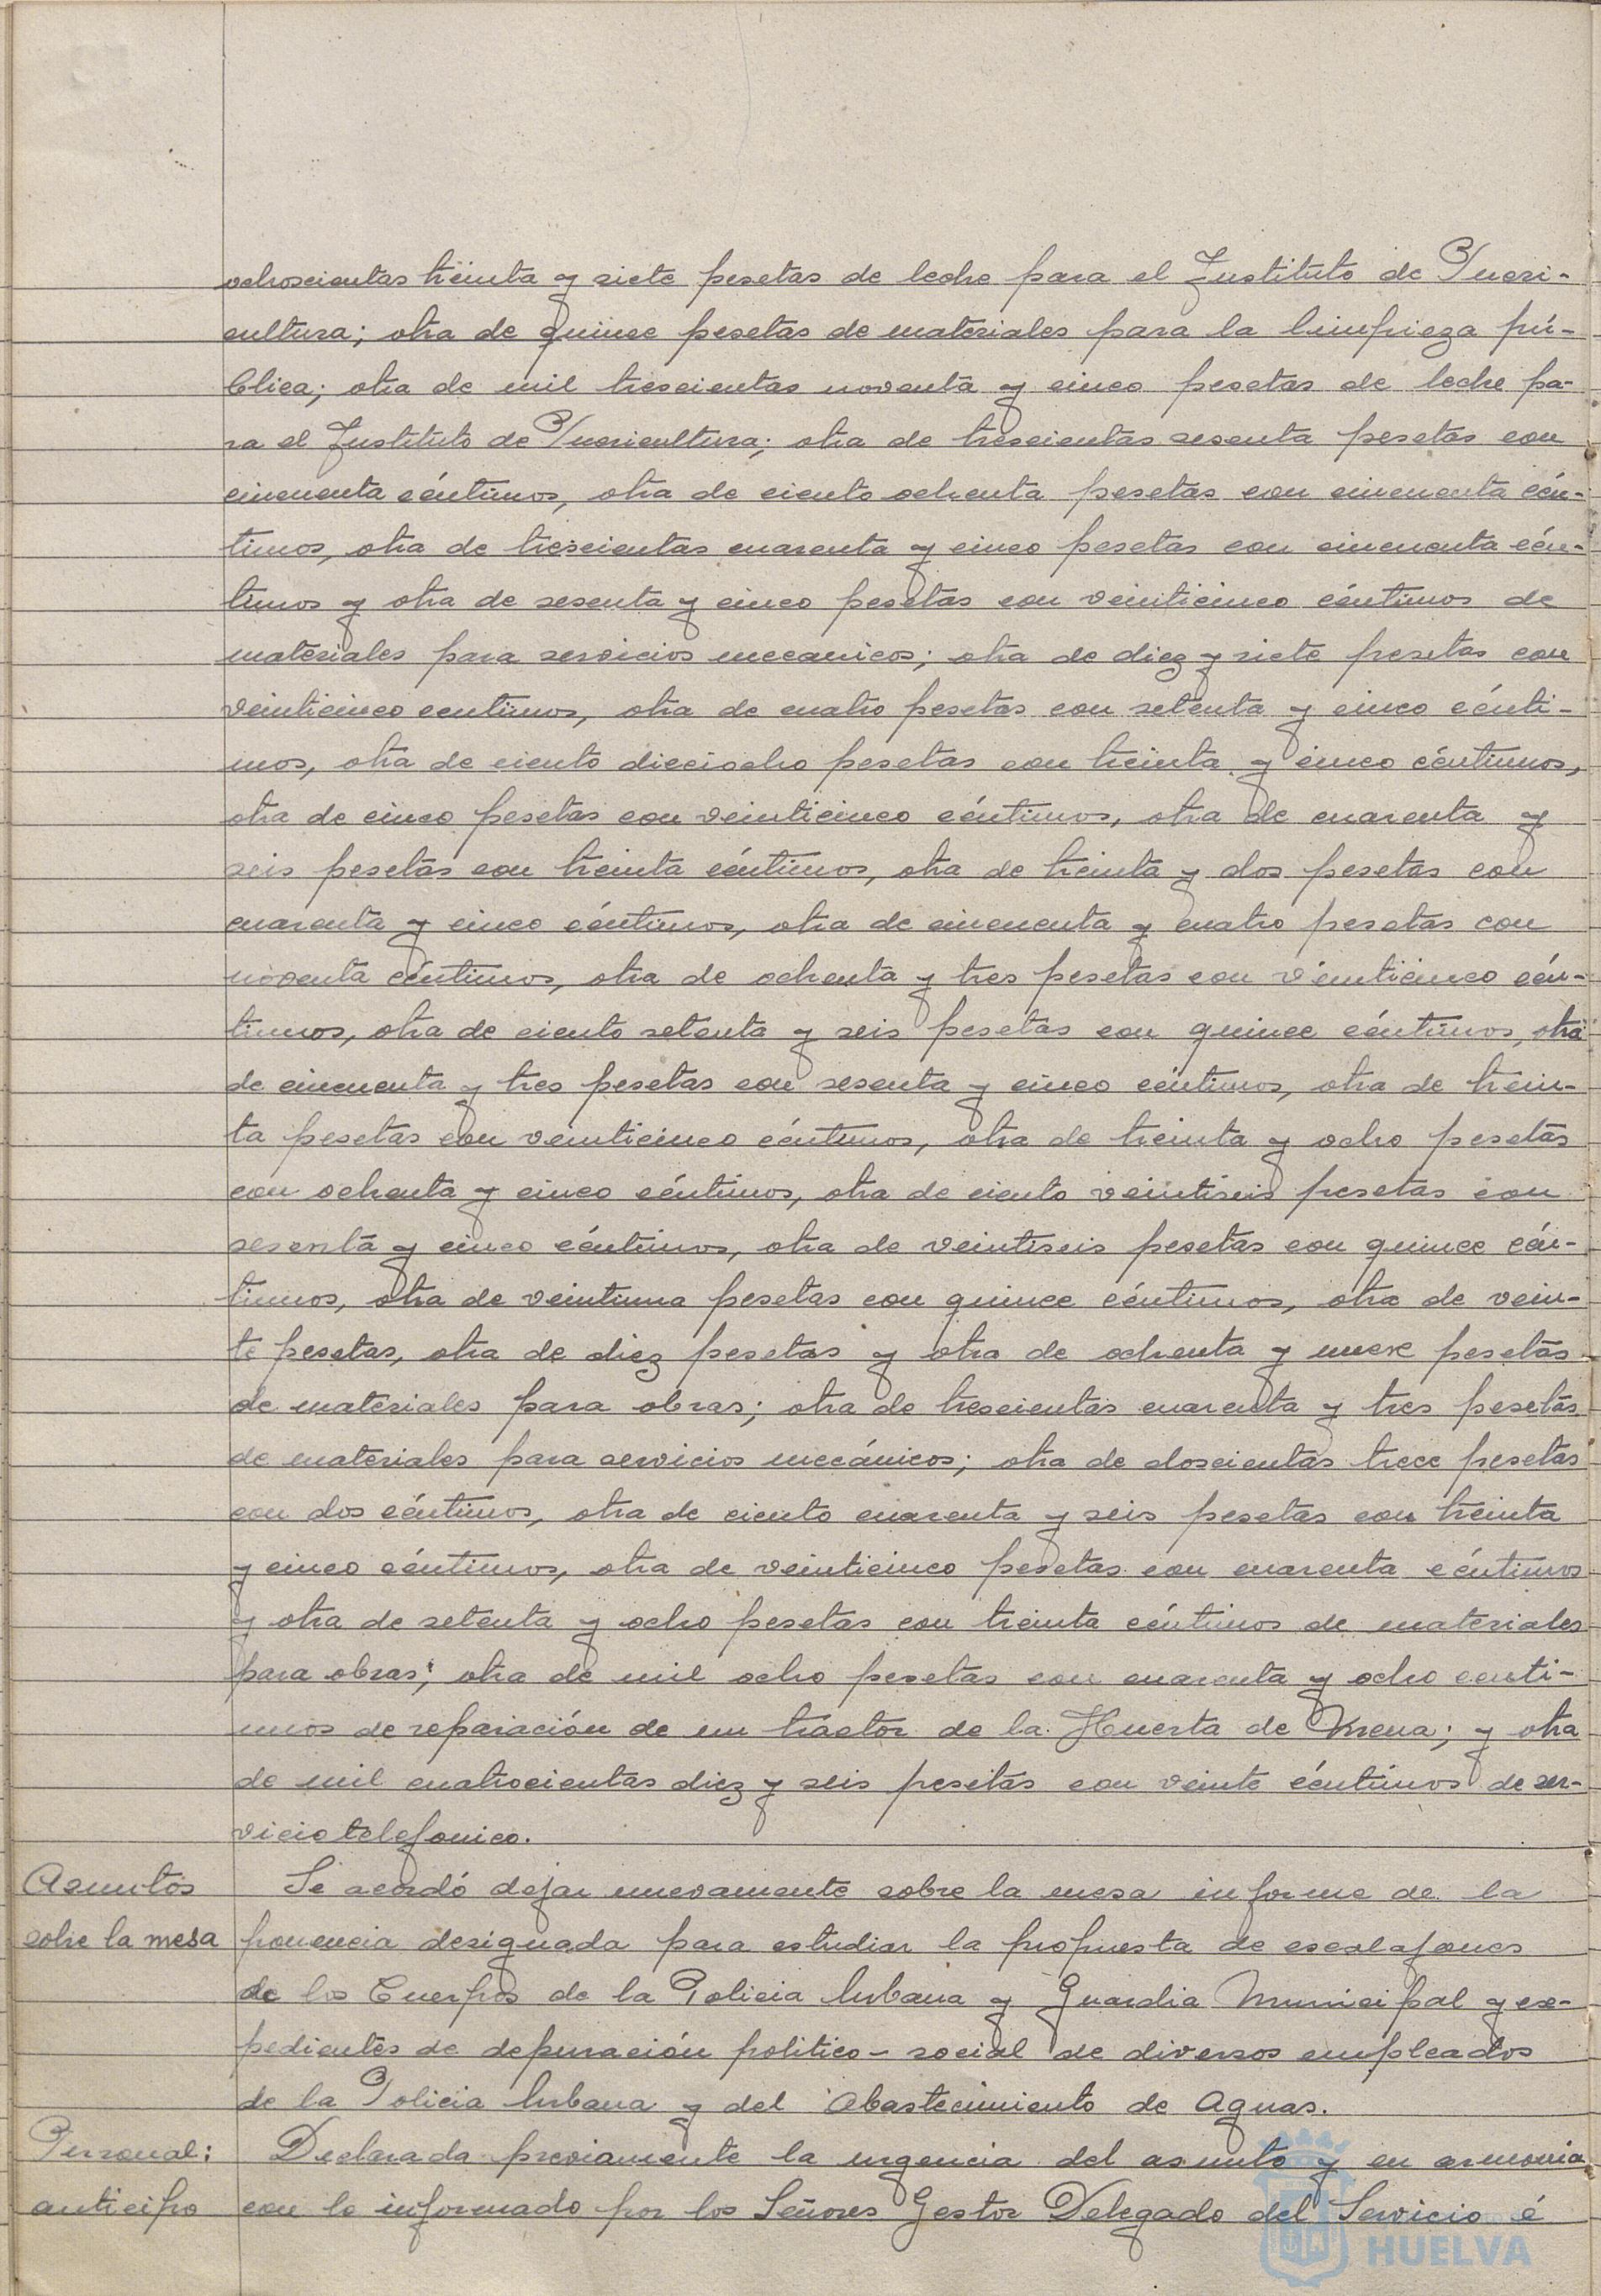 ochoscientas treinta y siete pesetas de leche para el Instituto de Pueri-
cultura; otra de quince pesetas de materiales para la limpieza pú-
blica; otra de mil trescientas noventa y cinco pesetas de leche pa-
ra el Instituto de Puericultura; otra de trescientas sesenta pesetas con
cincuenta céntimos, otra de ciento ochenta pesetas con cincuenta cén-
timos, otra de trescientas cuarenta y cinco pesetas con cincuenta cén-
timos y otra de sesenta y cinco pesetas con veinticinco céntimos de
materiales para servicios mecanicos; otra de diez y siete pesetas con
veinticinco centimos, otra de cuatro pesetas con setenta y cinco cénti-
mos, otra de ciento dieciocho pesetas con treinta y cinco céntimos,
otra de cinco pesetas con veinticinco céntimos, otra de cuarenta y
seis pesetas con treinta céntimos, otra de treinta y dos pesetas con
cuarenta y cinco céntimos, otra de cincuenta y cuatro pesetas con
noventa céntimos, otra de ochenta y tres pesetas con veinticinco cén-
timos, otra de ciento setenta y seis pesetas con quince céntimos, otra
de cincuenta y tres pesetas con sesenta y cinco céntimos, otra de trein-
ta pesetas con veinticinco céntimos, otra de treinta y ocho pesetas
con ochenta y cinco céntimos, otra de ciento veintiseis pesetas con
sesenta y cinco céntimos, otra de veintiseis pesetas con quince cén-
timos, otra de veintiuna pesetas con quince céntimos, otra de vein-
te pesetas, otra de diez pesetas y otra de ochenta y nueve pesetas
de materiales para obras; otra de trescientas cuarenta y tres pesetas
de materiales para servicios mecánicos; otra de doscientas trece pesetas
con dos céntimos, otra de ciento cuarenta y seis pesetas con treinta
y cinco céntimos, otra de veinticinco pesetas con cuarenta céntimos
y otra de setenta y ocho pesetas con treinta céntimos de materiales
para obras; otra de mil ocho pesetas con cuarenta y ocho centi-
mos de reparación de un tractor de la Huerta de Mena; y otra
de mil cuatrocientas diez y seis pesetas con veinte céntimos de ser-
vicio telefonico.
Asuntos Se acordó dejar nuevamente sobre la mesa informe de la
sobre la mesa ponencia designada para estudiar la propuesta de escalafones
de los Cuerpos de la Policia Urbana y Guardia Municipal y ex-
pedientes de depuración politico-social de diversos empleados
de la Policia Urbana y del Abastecimiento de Aguas.
Personal: Declarada previamente la urgencia del asunto y en armonia
anticipo con lo informado por los Señores Gestor Delegado del Servicio é
HUELVA